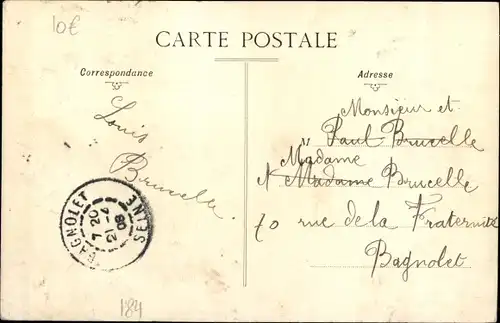 10€
CARTE POSTALE
Correspondance
Adresse
Louis
Brucelle.
Monsieur et
" Paul Brucelle
Madame
Madame Brucelle
70 rue de la Fraternité
Bagnolet
BAGNOLET
7 20
21-4
08
SEINE
184